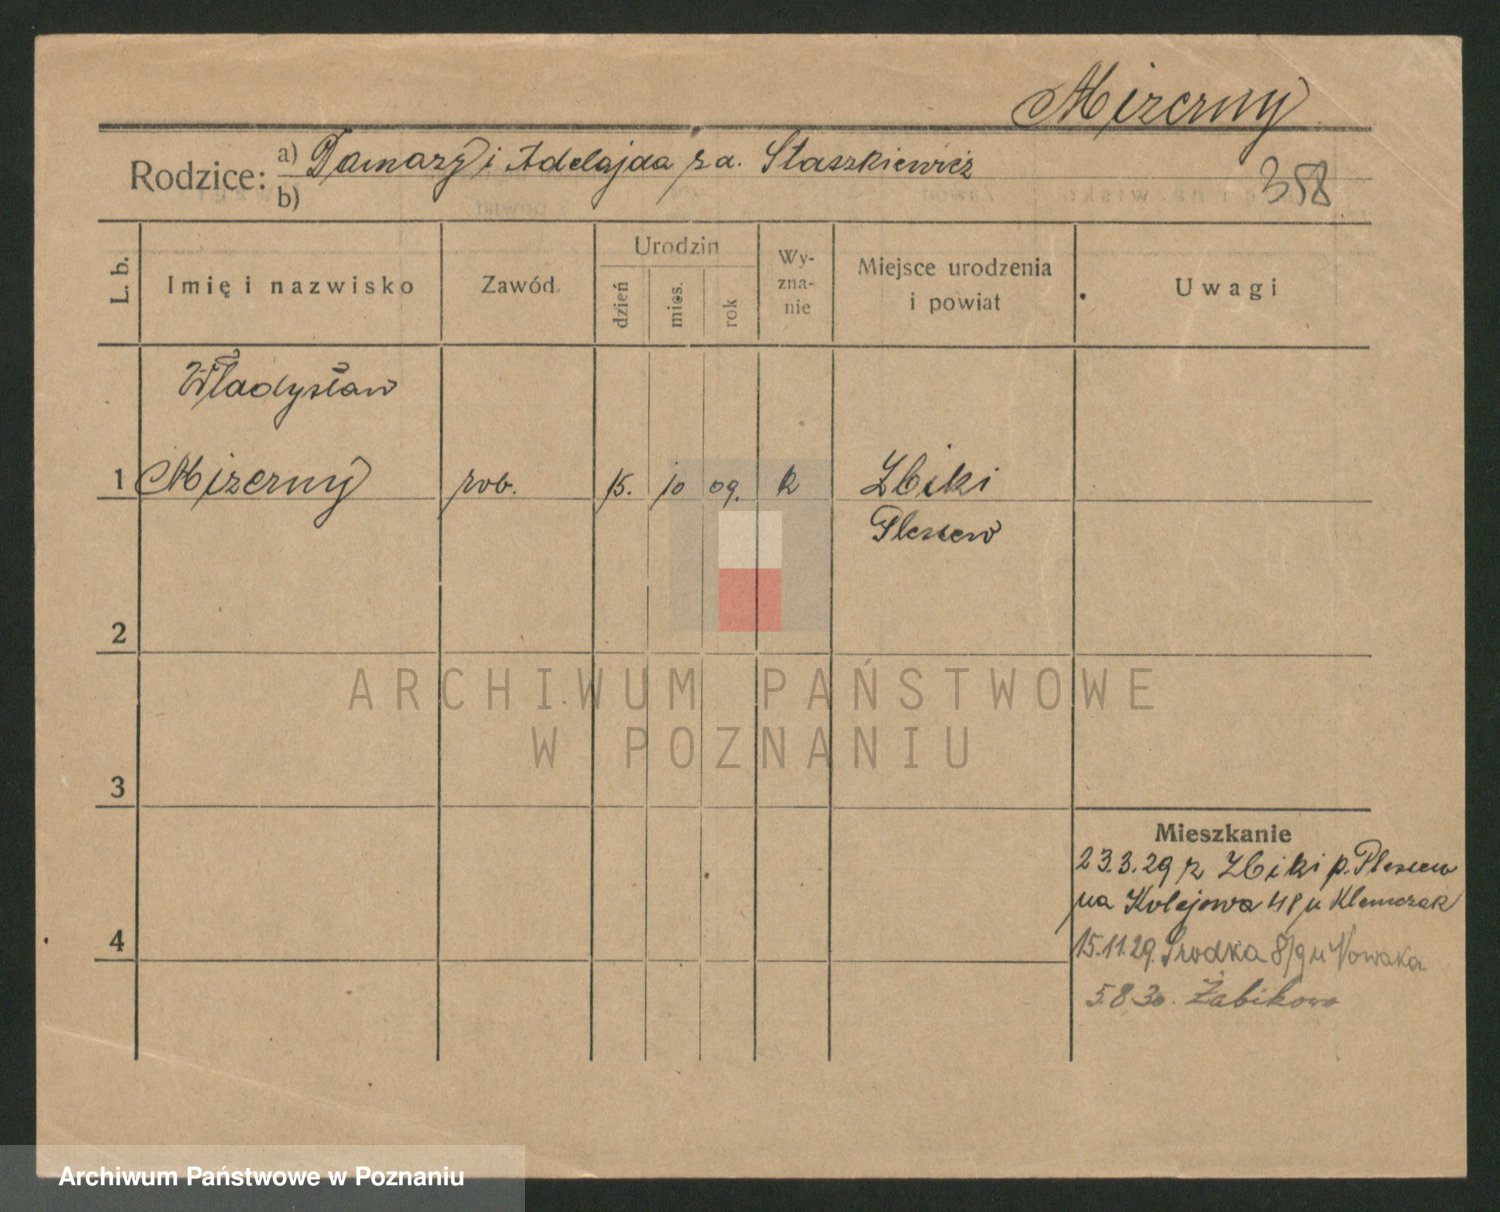 Mizerny
Rodzice: a) Damazy i Adelajda z d. Staszkiewicz
b)
358
L. b.
Imię i nazwisko
Zawód
Urodzin
dzień
mies.
rok
Wy-
zna-
nie
Miejsce urodzenia
i powiat
Uwagi
Władysław
1 Mizerny rob. 15. 10 09. k Żbiki
Pleszew
2
ARCHIWUM PAŃSTWOWE
W POZNANIU
3
Mieszkanie
23.3.29 z Żbiki p. Pleszew
na Kolejowa 48 u Klemczak
4
15.11.29. Środka 8/9 u Nowaka
5.8.30. Żabikowo
Archiwum Państwowe w Poznaniu